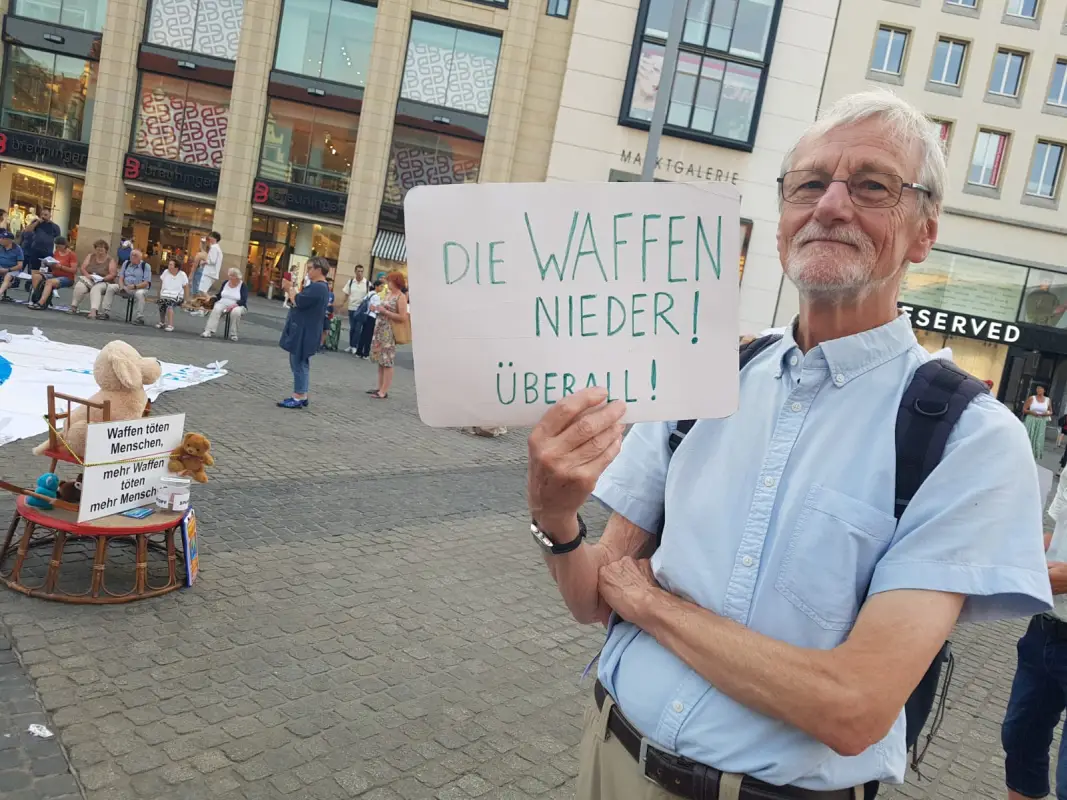 breuninger
breuninger
breuninger
MARKTGALERIE
DIE WAFFEN
NIEDER!
ÜBERALL!
RESERVED
Waffen töten
Menschen,
mehr Waffen
töten
mehr Mensch